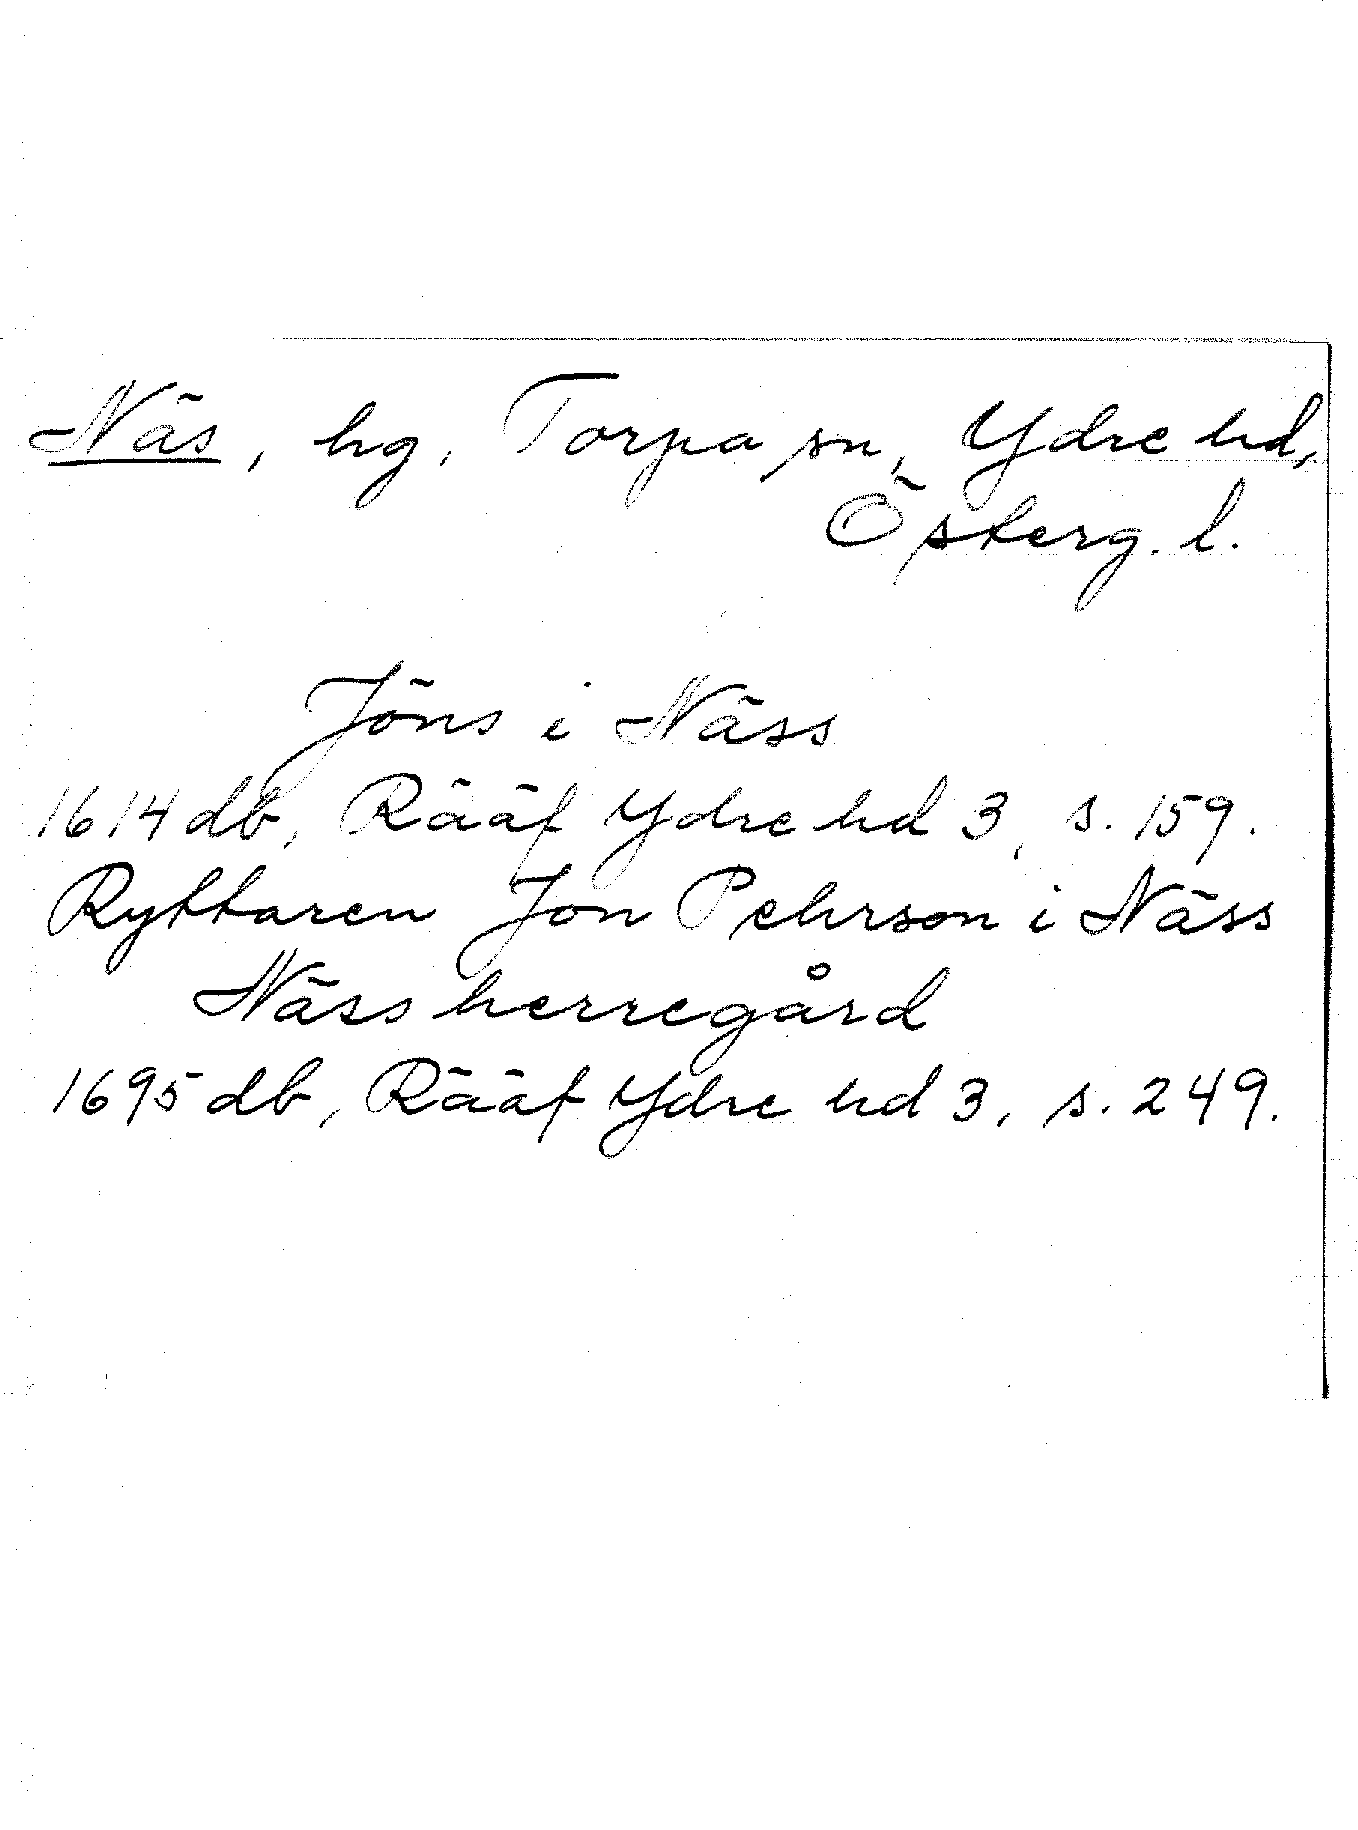 Näs, hg, Torpa sn, Ydre hd,
Österg. l.
Jöns i Näss
1614 db, Rääf Ydre hd 3, s. 159.
Ryttaren Jon Pehrson i Näss
Näss herregård
1695 db, Rääf Ydre hd 3, s. 249.